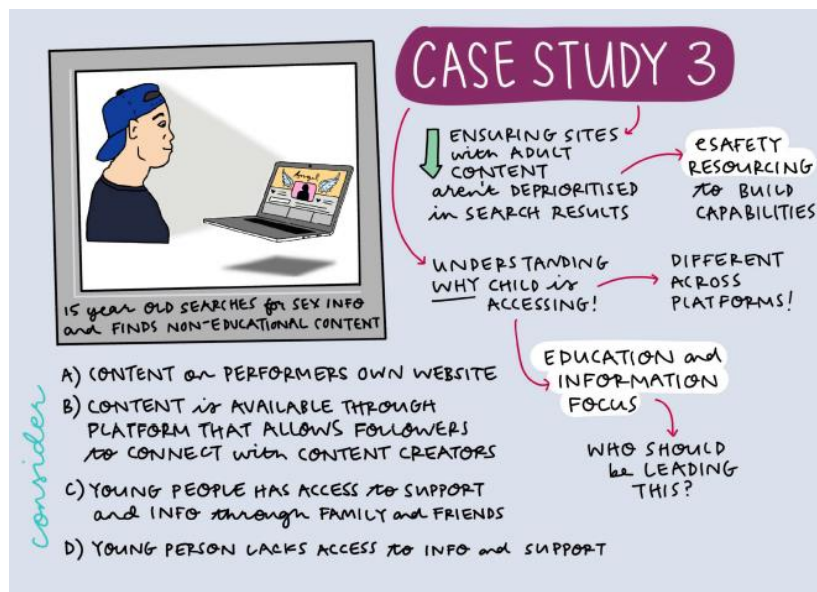 CASE STUDY 3
Angel
15 year OLD SEARCHES for SEX INFO
and FINDS NON-EDUCATIONAL CONTENT
ENSURING SITES
with ADULT
CONTENT
aren't DEPRIORITISED
in SEARCH RESULTS
eSAFETY
RESOURCING
to BUILD
CAPABILITIES
UNDERSTANDING
WHY CHILD is
ACCESSING!
DIFFERENT
ACROSS
PLATFORMS!
EDUCATION and
INFORMATION
FOCUS
WHO SHOULD
be LEADING
THIS?
consider
A) CONTENT on PERFORMERS OWN WEBSITE
B) CONTENT is AVAILABLE THROUGH
PLATFORM THAT ALLOWS FOLLOWERS
to CONNECT with CONTENT CREATORS
C) YOUNG PEOPLE HAS ACCESS to SUPPORT
and INFO through FAMILY and FRIENDS
D) YOUNG PERSON LACKS ACCESS to INFO and SUPPORT